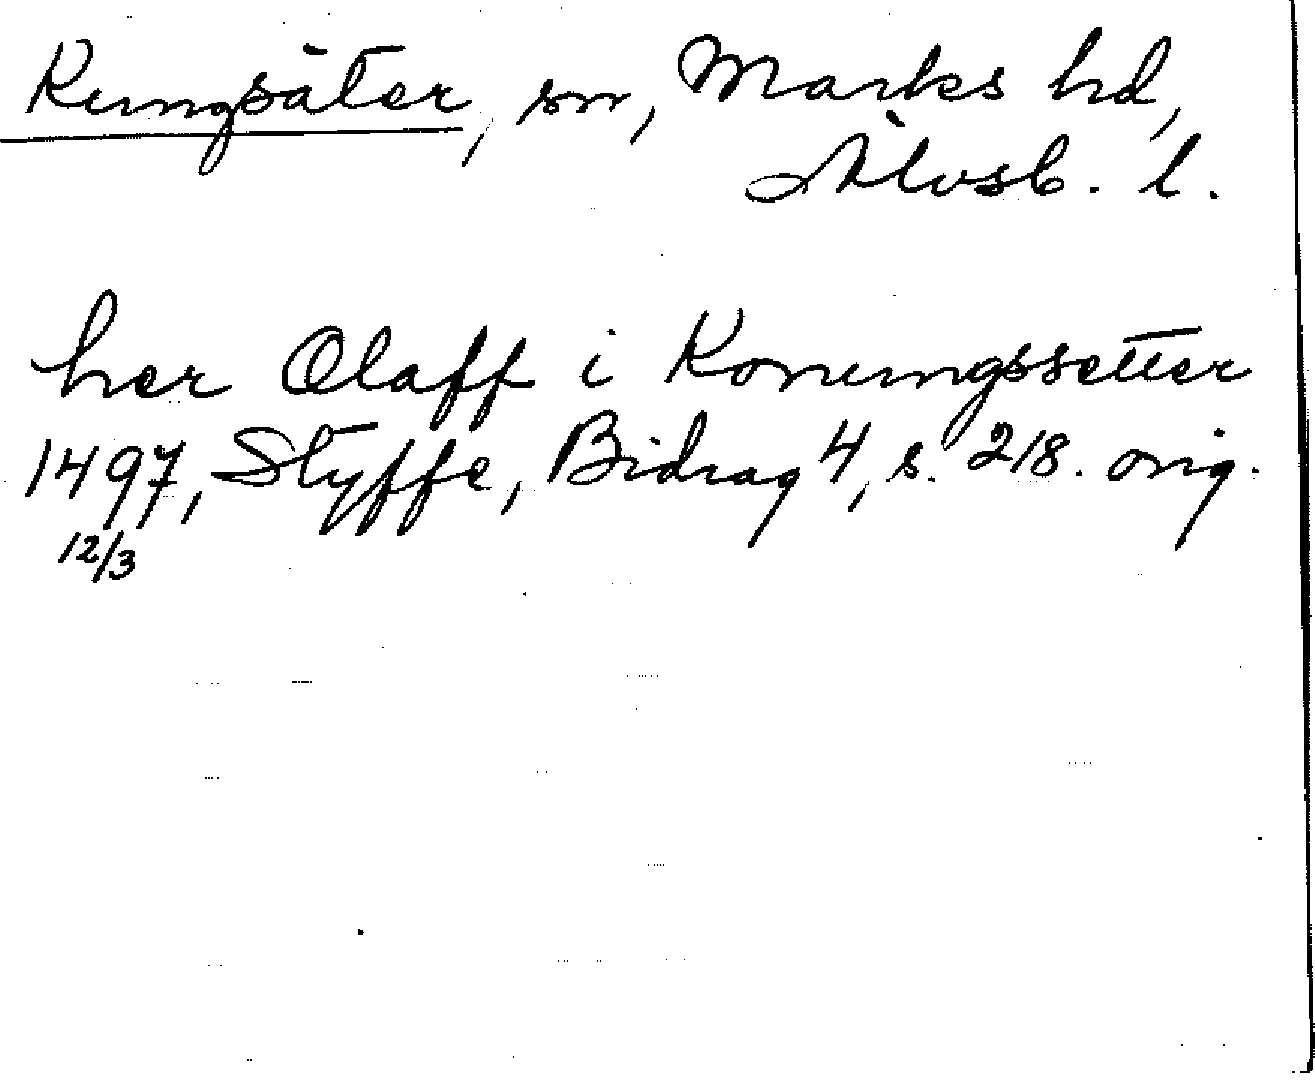 Kungsäter, sn, Marks hd,
Älvsb. l.
her Olaff i Konungssetter
1497, Styffe, Bidrag 4, s. 218. orig.
12/3